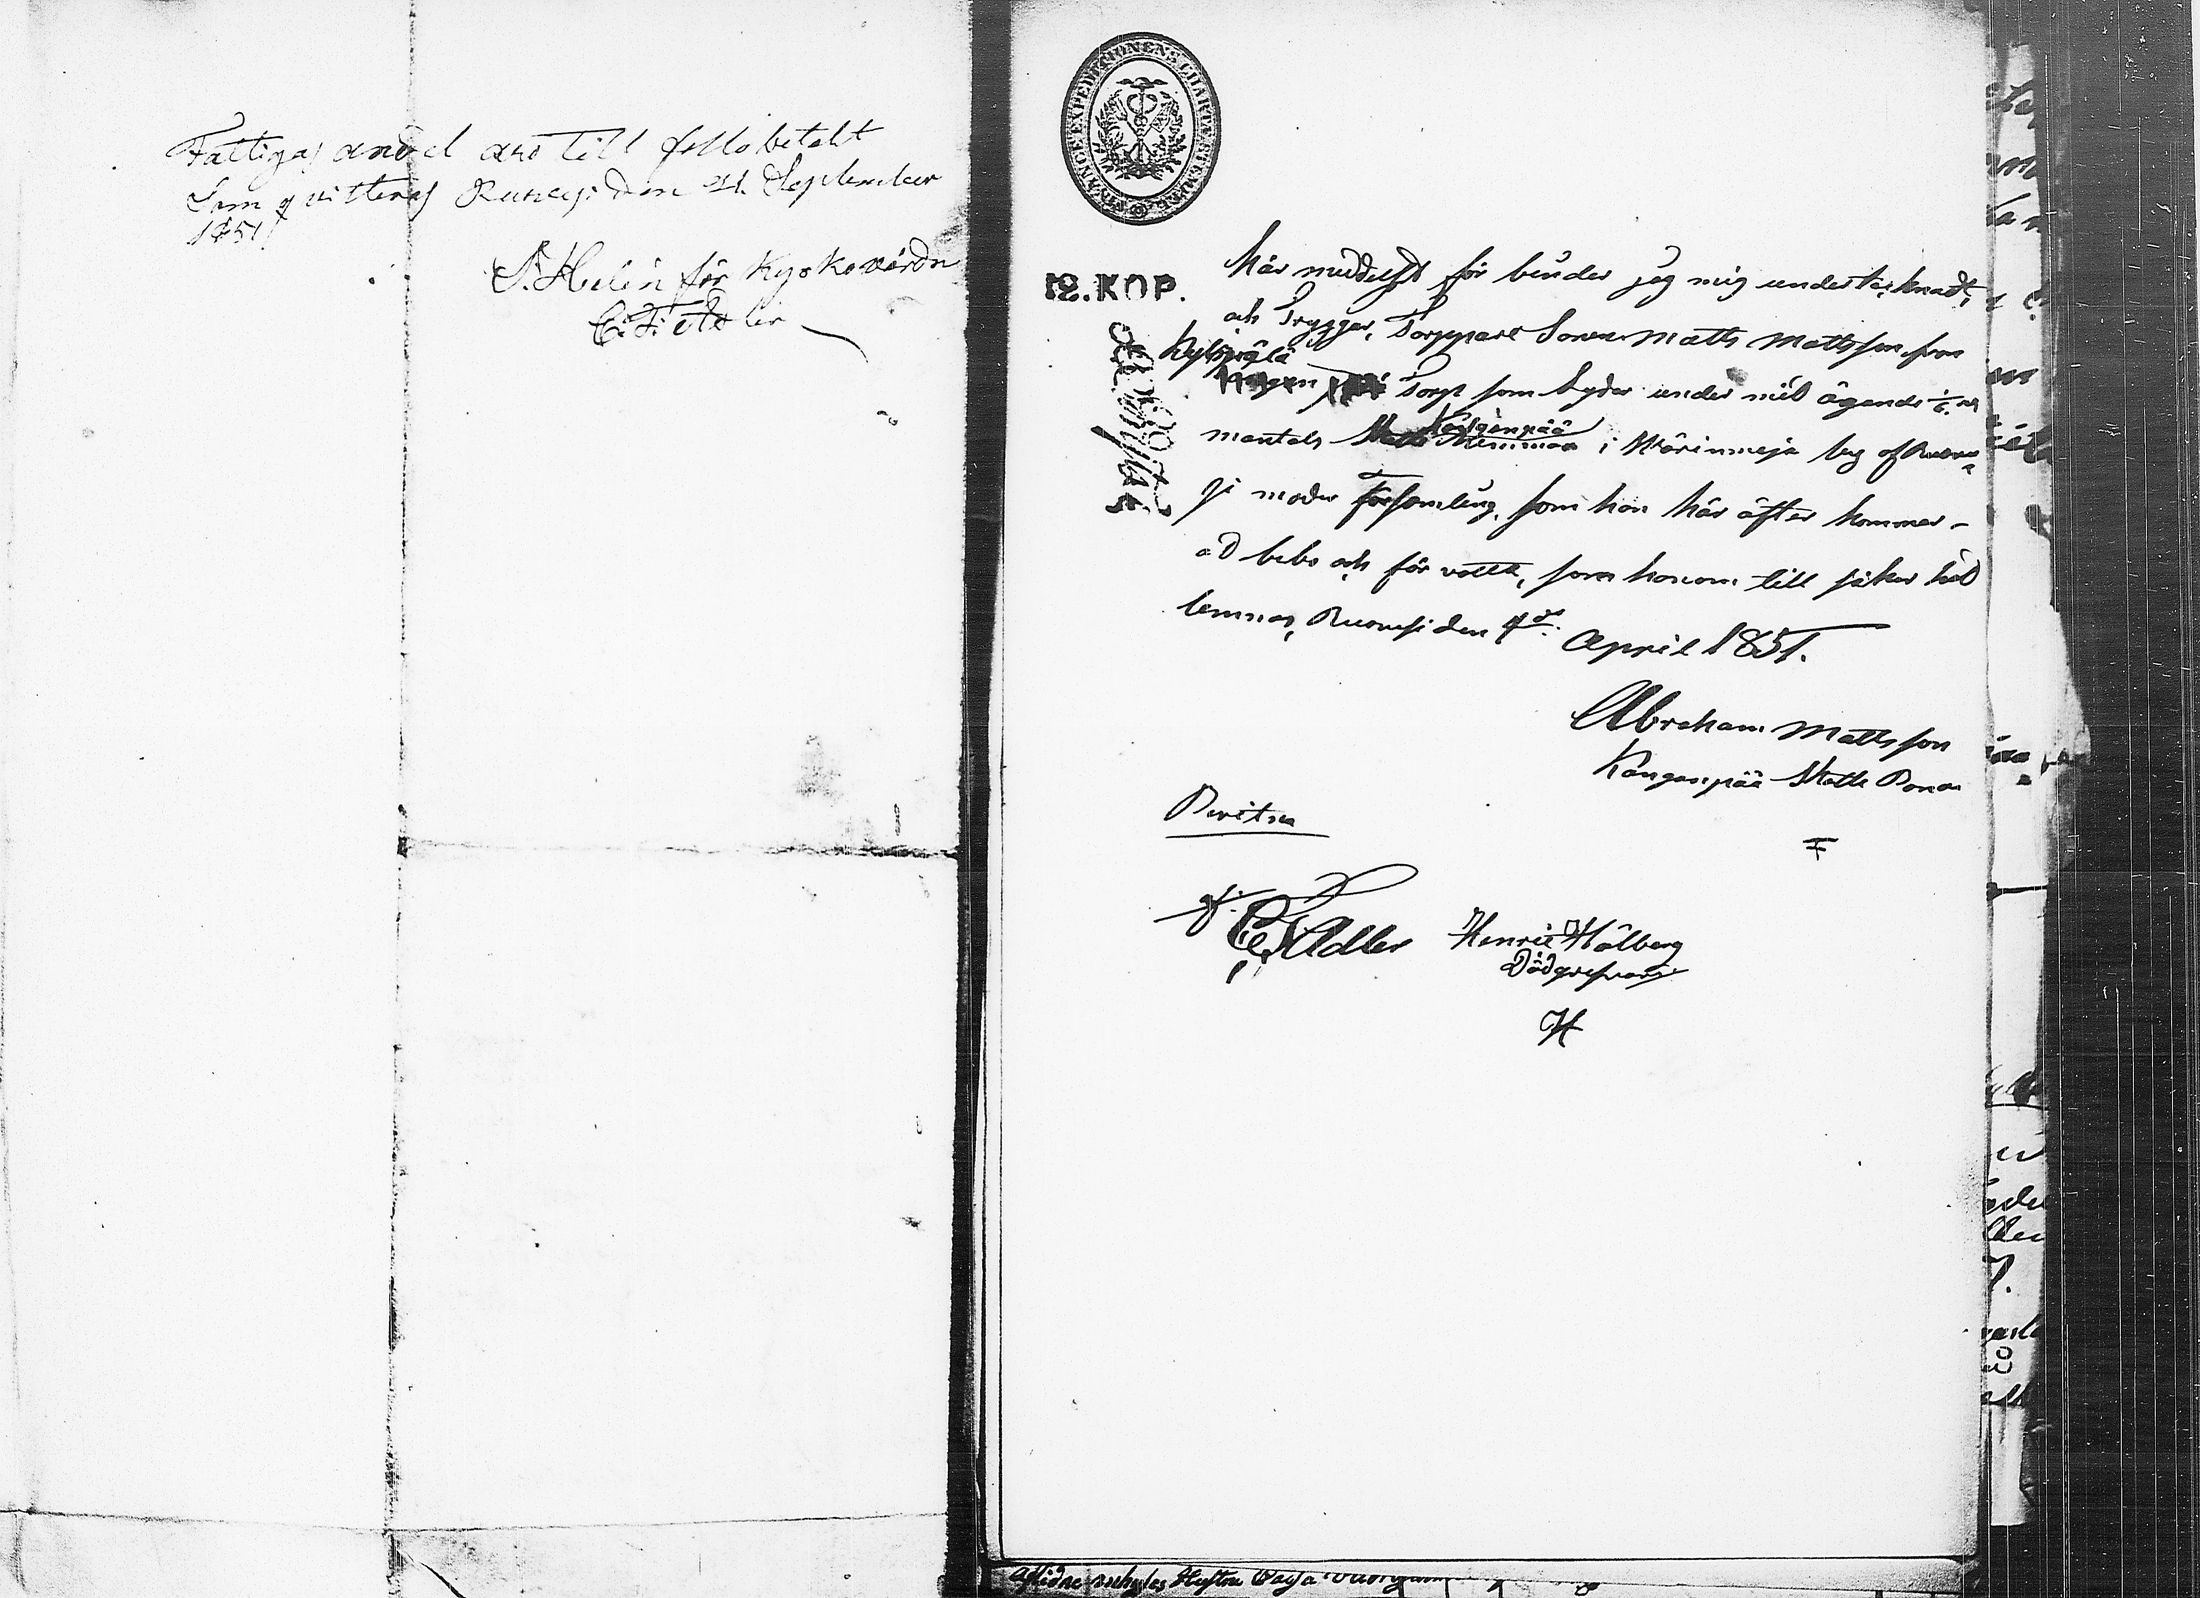 Fattigas andel äro till fullo betalt
Som qvitteras Ruovesi den 21. September
1851
S. Helén för Kyrkovärdn
C. F. Adler
FINANCE EXPEDITIONENS CHARTÆ STEMPEL
12. KOP.
Här meddelst för binder jag mig undertecknadt,
och Trygger, Torppare Sonen Matts Mattsson från
Torp som lyder under mitt ägande 1/6 
mantals Skatte Kangenpää i Wäärinmaja by af Ruove
si moder Församling, som han här äfter kommer
ad bebo och för valta, som honom till säker het
lemnas, Ruovesi den 4de April 1851.
Abraham Matts son
Kangenpää Skatte Bonde
Bevitna
af. C. F. Adler Henric Hålberg
Dödgrefvare
H